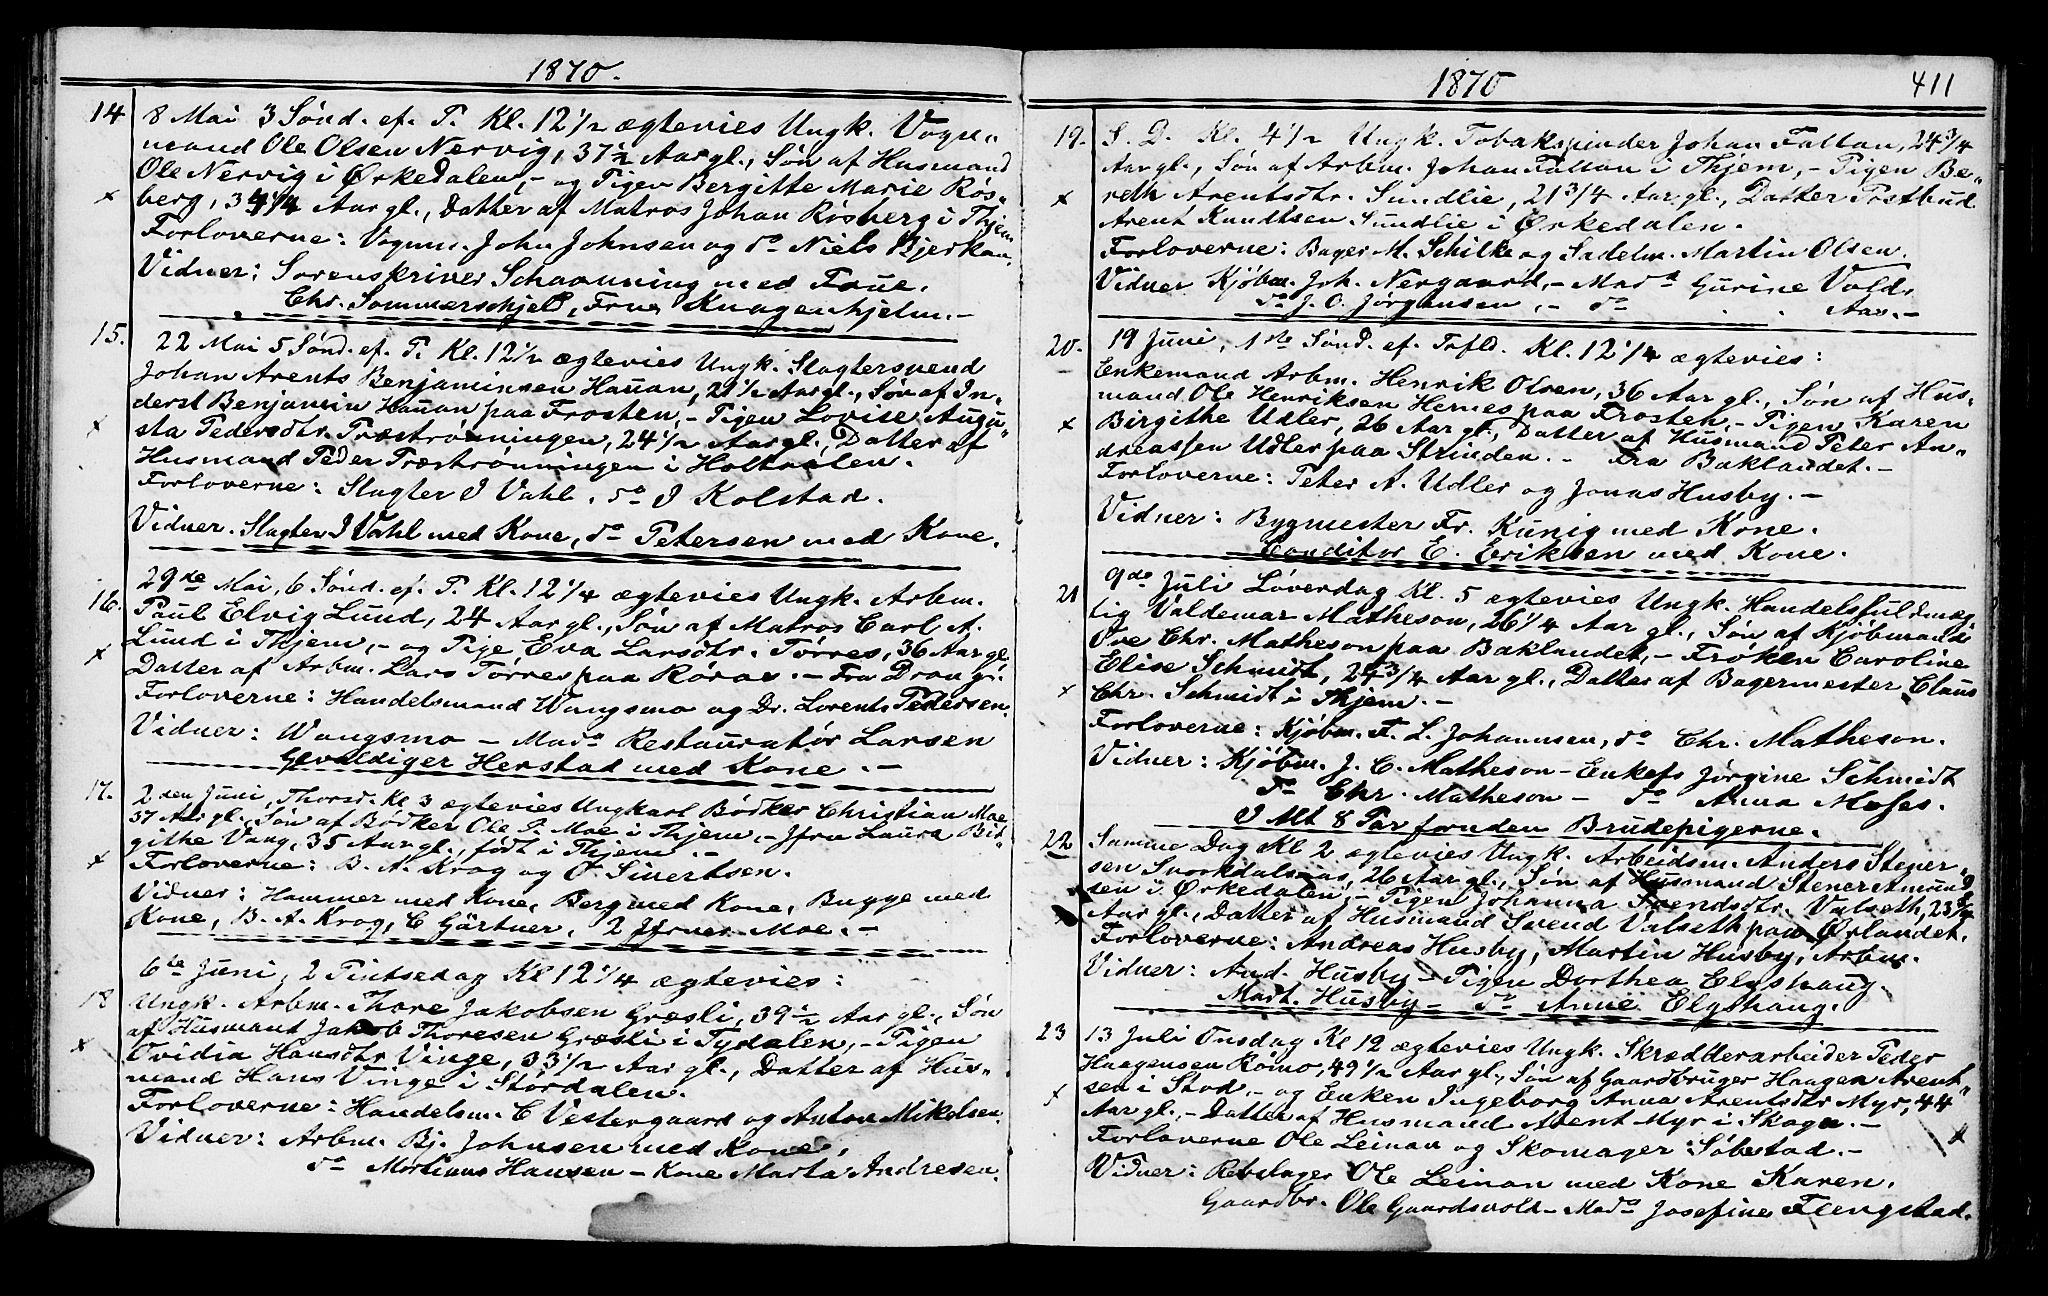 1870.
14 8 Mai 3 Sønd. ef. P. Kl. 12 1/2 ægtevies Ungk. Vogn„
mand Ole Olsen Nervig, 37 1/2 Aar gl., Søn af Husmand
Ole Nervig i Ørkedalen, - og Pigen Bergitte Marie Rös„
x berg, 34 1/4 Aar gl., Datter af Matros Johan Rösberg i Thjem
Forloverne: Vognm. John Johnsen og do Niels Bjerkan.
Vidner: Sorenskriver Schaanning med Frue.
Chr. Sommerschjeld, Frue Knagenhjelm. -
15. 22 Mai 5 Sønd. ef. P. Kl. 12 1/2 ægtevies Ungk. Slagtersvend
Johan Arents Benjaminsen Hauan, 21 1/2 Aar gl., Søn af In„
x derst Benjamin Hauan paa Frosten, - Pigen Lovise Augu„
sta Pedersdtr. Træstrønningen, 24 1/2 Aar gl., Datter af
Husmand Peder Træstrønningen i Holtaalen.
Forloverne: Slagter I Vahl. do I Kolstad.
Vidner. Slagter I Vahl med Kone, do Petersen med Kone.
16. 29de Mai, 6 Sønd. ef. P. Kl. 12 1/4 ægtevies Ungk. Arbm.
Paul Elvig Lund, 24 Aar gl., Søn af Matros Carl A.
Lund i Thjem, - og Pige Eva Larsdtr. Törres, 36 Aar gl.
x Datter af Arbm. Lars Törres paa Röraas. - Fra
Forloverne: Handelsmand Wangsmo og Dr. Lorents Pedersen.
Vidner: Wangsmo - Mado Restauratør Larsen
Gevaldiger Herstad med Kone. -
17. 2den Juni, Thorsd. Kl 3 ægtevies Ungkarl Bödker Christian Moe
37 Aar gl., Søn af Bödker Ole P. Moe i Thjem. - Jfru Laura Bir„
githe Vang, 35 Aar gl., født i Thjem. -
x Forloverne: B. A. Krog og O Sivertsen.
Vidner: Hammer med Kone, Berg med Kone, Bugge med
Kone, B. A. Krog, C Gärtner, 2 Jfruer Moe. -
18 6te Juni, 2 Pintsedag Kl 12 1/4 ægtevies:
Ungk. Arbm. Thore Jakobsen Græsli, 39 1/2 Aar gl., Søn
af Husmand Jakob Thoresen Græsli i Tydalen, - Pigen
x Ovidia Hansdtr Vinge, 33 1/2 Aar gl., Datter af Hus„
mand Hans Vinge i Stördalen.
Forloverne: Handelsm. C Vestergaard og Anton Mikelsen.
Vidner: Arbm. Bj. Johnsen med Kone,
do Martinus Hansen - Kone Marta Andresen.
1870 411
19. S. D. Kl. 4 1/2 Ungk. Tobakspinder Johan Faltan, 24 3/4
Aar gl., Søn af Arbm. Johan Faltan i Thjem, - Pigen Be„
x reth Arentsdtr. Sundlie, 21 3/4 Aar gl., Datter Postbud
Arent Knudtsen Sundlie i Ørkedalen.
Forloverne: Bager M. Schilke og Sadelm. Martin Olsen.
Vidner Kjøbm. Joh. Nergaard, - Mado Gurine Vold.
do J. O. Jørgensen, - do Aas. -
20. 19 Juni, 1ste Sønd. ef. Trfld. Kl. 12 1/4 ægtevies:
Enkemand Arbm. Henrik Olsen, 36 Aar gl., Søn af Hus„
mand Ole Henriksen Hernes paa Frosten, - Pigen Karen
x Birgithe Udler, 26 Aar gl., Datter af Husmand Peter An„
dreassen Udler paa Strinden. - Fra Baklandet. -
Forloverne: Peter A. Udler og Jonas Husby. -
Vidner: Bygmester Fr. Kunig med Kone.
Conditor E. Eriksen med Kone.
21 9de Juli Løverdag Kl. 5 ægtevies Ungk. Handelsfuldmæg„
lig Valdemar Matheson, 26 1/4 Aar gl., Søn af Kjøbmand
Ove Chr. Matheson paa Baklandet, - Frøken Caroline
Elise Schmidt, 24 3/4 Aar gl., Datter af Bagermester Claus
x Chr. Schmidt i Thjem. -
Forloverne: Kjøbm. F. L. Johannsen, do Chr. Matheson.
Vidner: Kjøbm. J. C. Matheson - Enkefr Jörgine Schmidt
do Chr. Matheson - do Anna Moses.
I Alt 8 Par foruden Brudepigerne.
22 Samme Dag Kl 2 ægtevies Ungk. Arbeidsm. Anders Stener„
sen Svorkdalsaas, 26 Aar gl., Søn af Husmand Stener Amund
sen i Ørkedalen, - Pigen Johanna Svendsdtr. Valseth, 23 3/4
Aar gl., Datter af Husmand Svend Valseth paa Ørlandet.
Forloverne: Andreas Husby, Martin Husby, Arbm.
Vidner: And. Husby - Pigen Dorthea Elgshaug.
Mart. Husby - do Anne Elgshaug.
23 13 Juli Onsdag Kl 12 ægtevies Ungk. Skrædderarbeider Peder
Haagensen Römo, 49 1/2 Aar gl., Søn af Gaardbruger Haagen Arent„
x sen i Stod, - og Enken Ingeborg Anna Arentsdtr Myr, 44
Aar gl., - Datter af Husmand Arent Myr i Skogn. -
Forloverne Ole Leinan og Skomager Söbstad. - x
Vidner: Rebslager Ole Leinan med Kone Karen.
Gaardbr. Ole Gaardsvold - Mado Josefine Flengstad.